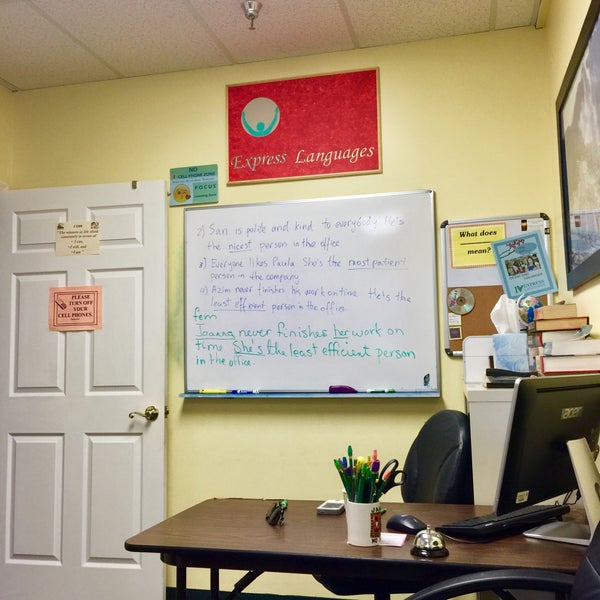 Express Languages
NO
CELL PHONE ZONE
FOCUS
I CAN
PLEASE
TURN OFF
YOUR
CELL PHONES.
2) Sari is polite and kind to everybody He's
the nicest person in the office
3) Everyone likes Paula She's the most patient
person in the company
4) Azim never finishes his work on time He's the
least efficient person in the office.
fem
Joanna never finishes her work on
time She's the least efficient person
in the office.
What does
mean?
EXPRESS
acer